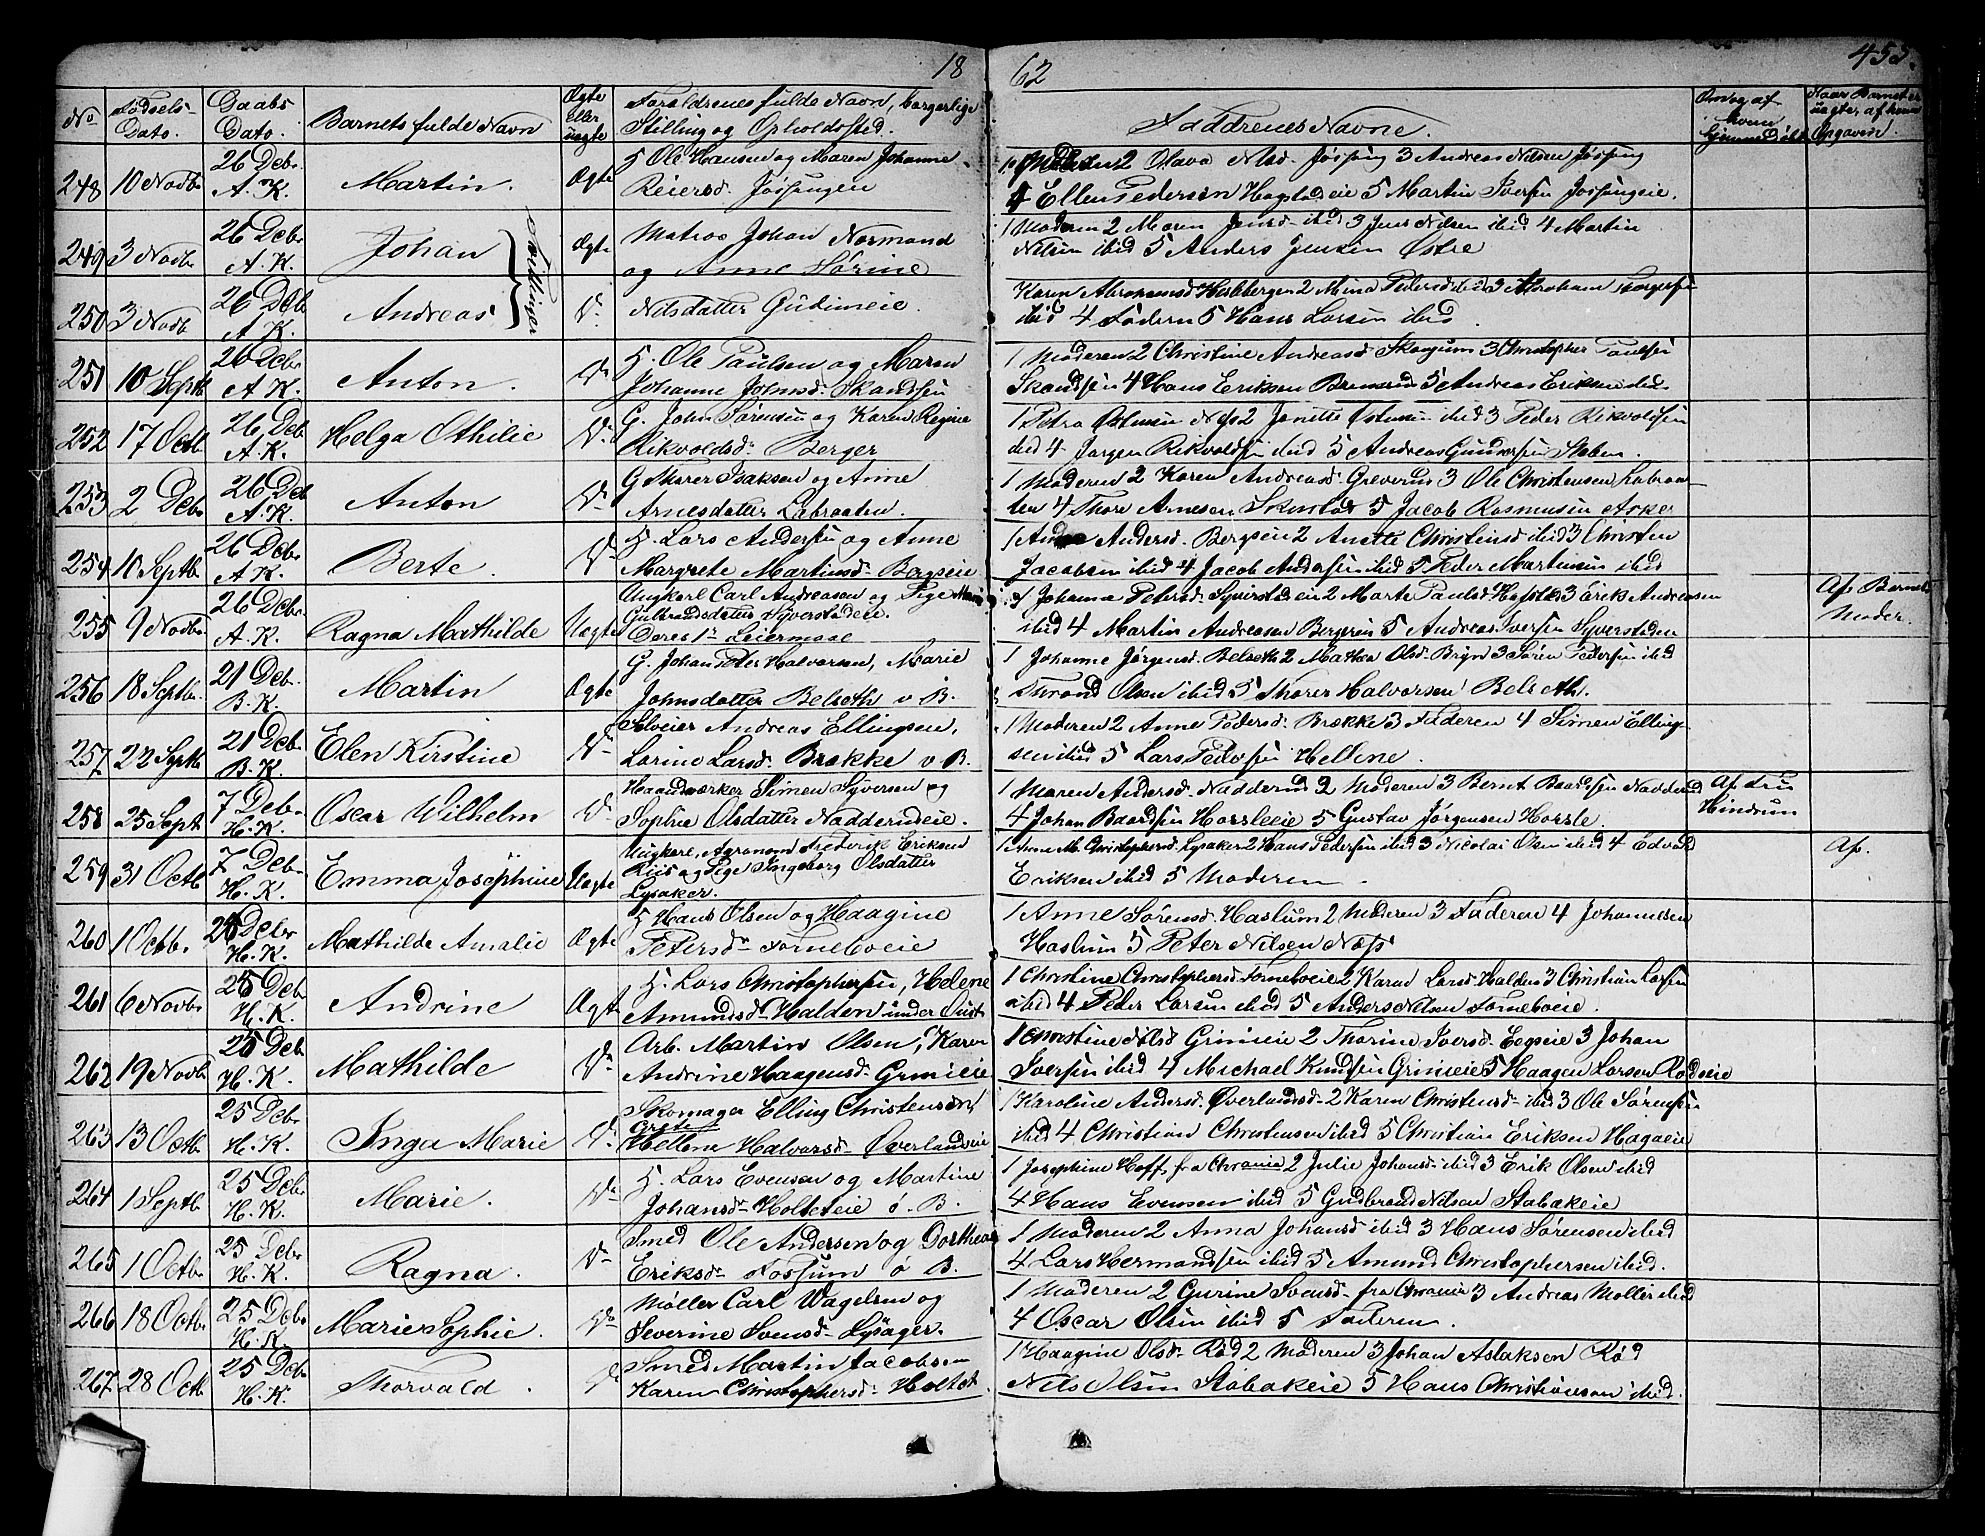 18 62 455.
No Fødsels-Dato. Daabs Dato. Barnets fulde Navn Ægte eller uægte Forældrenes fulde Navn, borgerlige Stilling og Opholdssted. Faddrenes Navne. Om og af hvem Hjemmedøbt Naar Barnet er uægte, af hvem Opgaven.
248 10 Novbr 26 Debr A. K. Martin. Ægte
H. Ole Hansen og Maren Johanne
Reiersd. Jøssungen
1 Moderen 2 Olava Nilsd. Jøssung 3 Andreas Nilsen Jøssung
4 Ellen Pedersen Hogstadeie 5 Martin Iversen Jossungeie.
249 3 Novbr 26 Debr A. K. Johan Tvillinger Ægte
Matros Johan Normand
og Anne Sørine
1 Moderen 2 Maren Jensd. ibid 3 Jens Nilsen ibid 4 Martin
Nilsen ibid 5 Anders Jensen Østre
250 3 Novb. 26 Deb A. K. Andreas Do
Nilsdatter Gudimeie.
Karen Abrahamsd Holsbergen 2 Mina Pedersd ibid 3 Abraham
ibid 4 Faderen 5 Hans Larsen ibid
251 10 Septb 26 Debr A. K. Anton. Do
H. Ole Paulsen og Maren
Johanne Johnsd. Skandsen
1 Moderen 2 Christine Andreasd. Skougum 3 Christopher Paulsen
Skandsen 4 Hans Eriksen Bremsrud 5 Andreas Eriksen ibid.
252 17 Octb 26 Deb A. K. Helga Othilie Do
G. John Sørensen og Karen Regine
Rikvoldsd. Berger
1 Petra Østensen Næs 2 Janette Østensen ibid 3 Peder Rikvoldsen
ibid 4 Jørgen Rikvoldsen ibid 5 Andreas Gundersen Staben.
253 2 Debr 26 Deb A. K. Anton Do
G Thorer Isaksen og Anne
Arnesdatter Labraaten.
1 Moderen 2 Karen Andreasd. Greverus 3 Ole Christensen Labraa-
ten 4 Thore Arnesen Skustad 5 Jacob Rasmusen Asker
254 10 Septb 26 Debr A. K. Berte. Do
H. Lars Andersen og Anne
Margrete Martinsd. Bergseie
1 Andersd. Bergseie 2 Anette Christensd ibid 3 Christen
Jacobsen ibid 4 Jacob Andersen ibid 5 Peder Martinsen ibid
255 9 Novbr 26 Debr A. K. Ragna Mathilde Uægte
Ungkarl Carl Andreasen og Pige
Gulbrandsdatter Syverstadeie.
Deres 1ste Leiermaal
1 Johanna Petersd. Syverstadeie 2 Marte Paulsd. 3 Erik Andreasen
ibid 4 Martin Andreasen Bergseie 5 Andreas Iversen Syverstadeie
Af Barnets Moder.
256 18 Septb. 21 Deb. B. K. Martin Ægte
G. Johan Peter Halvorsen, Marie
Johnsdatter Belseth v B.
1 Johanne Jørgensd. Belseth 2 Mathea Olsd. Bryn 3 Søren Pedersen ibid
Thrond Olsen ibid 5 Thorer Halvorsen Belseth.
257 22 Septb 21 Deb. B. K. Elen Kirstine Do
Selveier Andreas Ellingsen,
Larine Larsd. Brække v B.
1 Moderen 2 Anne Pedersd. Brække 3 Faderen 4 Simen Elling-
sen ibid 5 Lars Pedersen Hellene.
258 25 Sept 7 Deb. H. K. Oscar Wilhelm Do
Haandværker Simen Syversen og
Sophie Olsdatter Nadderudeie.
1 Maren Andersd. Nadderud 2 Moderen 3 Bernt Baardsen Nadderud
4 Johan Baardsen Horsleeie 5 Gustav Jørgensen Horsle.
Af Fru Hindrum
259 31 Octb 7 Deb. H. K. Emma Josephine Uægte
Ungkarl, Agronom Frederik Eriksen
Riis og Pige Ingeborg Olsdatter
Lysaker.
1 Anne M. Christophersd. Lysaker 2 Hans Pedersen ibid 3 Nicolai Olsen ibid 4 Edvard
Eriksen ibid 5 Moderen.
Af.
260 1 Octbr 26 Debr H. K. Mathilde Amalie Ægte
H Hans Olsen og Haagine
Petersd. Forneboeie
1 Anne Sørensd. Haslum 2 Moderen 3 Faderen 4 Johannesen
Haslum 5 Peter Nilsen Næss
261 6 Novbr 25 Deb H. K. Andrine Ægte
H. Lars Christophersen, Helene
Amundsd. Halden under Oust
1 Christine Christophersd. Forneboeie 2 Karen Larsd. Halden 3 Christian Larsen
ibid 4 Peder Larsen ibid 5 Anders Nilsen Forneboeie.
262 19 Novb 25 Deb. H. K. Mathilde Do
Arb. Martin Olsen, Karen
Andrine Haagensd. Grinieie
1 Christine Nilsd Grinieie 2 Thorine Iversd. Eegseie 3 Johan
Iversen ibid 4 Michael Knudsen Grinieie 5 Haagen Larsen Rødseie
263 13 Octb. 25 Deb H. K. Inga Marie Do
Skomager Elling Christensen,
Grete
Hellene Halvorsd. Øverlandseie
1 Karoline Andersd. Øverlandsd. 2 Karen Christensd. ibid 3 Ole Sørensen
ibid 4 Christian Christensen ibid 5 Christian Eriksen Hagaeie
264 1 Septb. 25 Deb H. K. Marie. Do
H. Lars Evensen og Martine
Johansd. Holteteie ø. B.
1 Josephine Hoff fra Chrania 2 Julie Johansd. ibid 3 Erik Olsen ibid
4 Hans Evensen ibid 5 Gudbrand Nilsen Stabækeie
265 1 Octb. 25 Deb. H. K. Ragna. Do
Smed Ole Andersen og Dorthea
Eriksd. Fossum ø B.
1 Moderen 2 Anna Johansd ibid 3 Hans Sørensen ibid
4 Lars Hermandsen ibid 5 Amund Christophersen ibid.
266 18 Octb. 25 Debr H. K. Marie Sophie. Do
Møller Carl Vagelsen og
Severine Svensd. Lysager.
1 Moderen 2 Gurine Svensd. fra Chrania 3 Andreas Møller ibid
4 Oscar Olsen ibid 5 Faderen.
267 28 Octb 25 Deb H. K. Thorvald. Do
Smed Martin Jacobsen
Karen Christophersd. Holtet
1 Haagine Olsd. Rød 2 Moderen 3 Johan Aslaksen Rød
Nils Olsen Stabækeie 5 Hans Christiansen ibid.